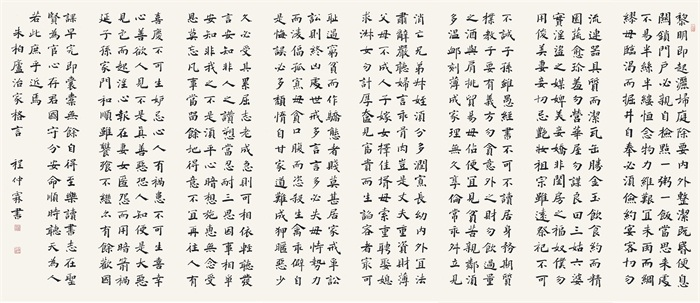 黎明即起灑掃庭除要內外整潔既昏便息
關鎖門戶必親自檢點一粥一飯當思來處
不易半絲半縷恆念物力維艱宜未雨而綢
繆毋臨渴而掘井自奉必須儉約宴客切勿
流連器具質而潔瓦缶勝金玉飲食約而精
園蔬愈珍饈勿營華屋勿謀良田三姑六婆
實淫盜之媒婢美妾嬌非閨房之福奴僕勿
用俊美妻妾切忌艷妝祖宗雖遠祭祀不可
不誠子孫雖愚經書不可不讀居身務期質
樸教子要有義方勿貪意外之財勿飲過量
之酒與肩挑貿易勿佔便宜見貧苦親鄰須
多溫卹刻薄成家理無久享倫常乖舛立見
消亡兄弟叔姪須分多潤寡長幼內外宜法
肅辭嚴聽婦言乖骨肉豈是丈夫重貲財薄
父母不成人子嫁女擇佳壻毋索重聘娶媳
求淑女勿計厚奩見富貴而生諂容者最可
恥遇貧窮而作驕態者賤莫甚居家戒爭訟
訟則終凶處世戒多言言多必失毋恃勢力
而凌偪孤寡毋貪口腹而恣殺生禽乖僻自
是悔誤必多頹惰自甘家道難成狎暱惡少
久必受其累屈志老成急則可相依輕聽發
言安知非人之譖愬當忍耐三思因事相爭
安知非我之不是須平心暗想施惠無念受
恩莫忘凡事當留餘地得意不宜再往人有
喜慶不可生妒忌心人有禍患不可生喜幸
心善欲人見不是真善惡恐人知便是大惡
見色而起淫心報在妻女匿怨而用暗箭禍
延子孫家門和順雖饔飧不繼亦有餘歡國
課早完即囊橐無餘自得至樂讀書志在聖
賢為官心存君國守分安命順時聽天為人
若此庶乎近焉
朱柏廬治家格言 程仲霖書